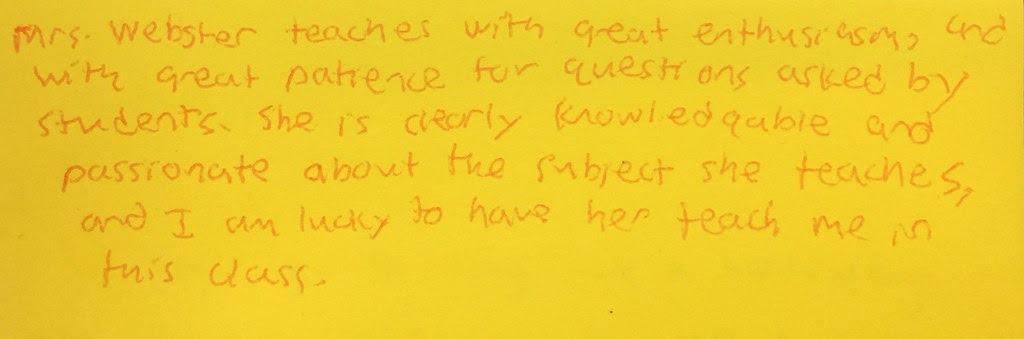 Mrs. Webster teaches with great enthusiasm, and
with great patience for questions asked by
students. She is clearly knowledgable and
passionate about the subject she teaches,
and I am lucky to have her teach me in
this class.